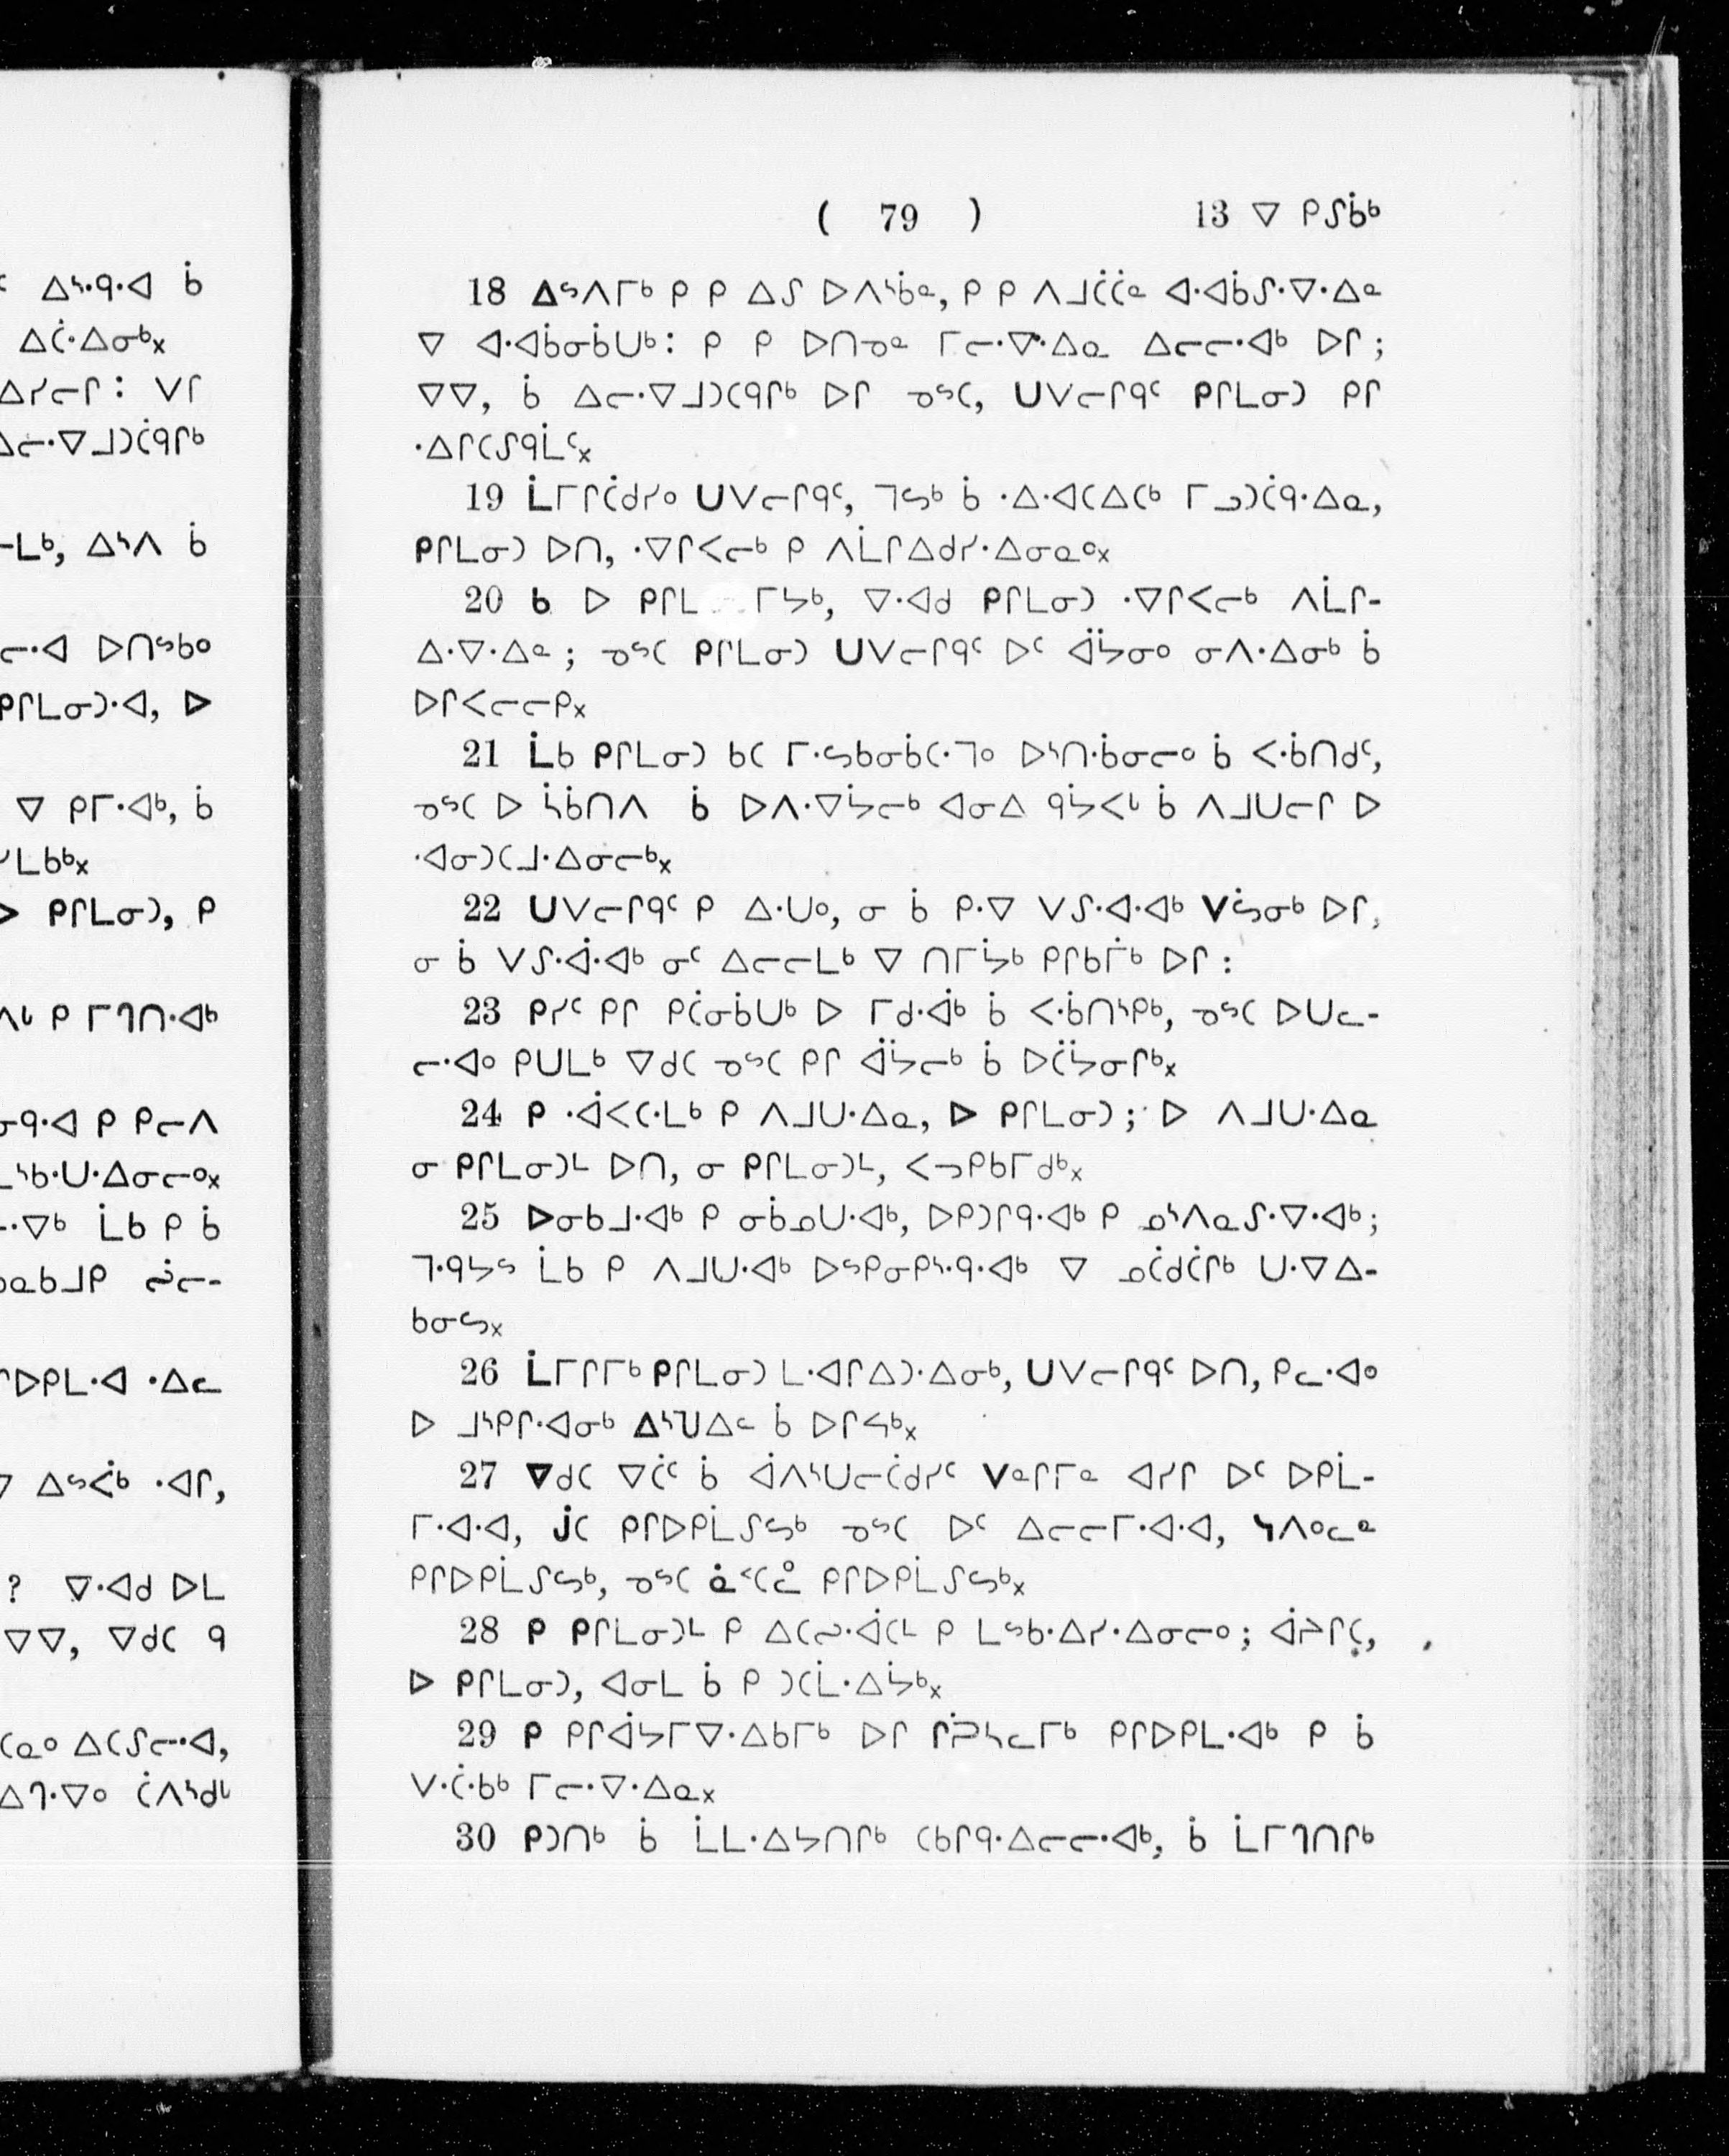 ( 79 ) 13 ᐁ ᑭᔑᑳᒃ
18 ᐃᔆᐱᒥᒃ ᑭ ᑭ ᐃᔑ ᐅᐱᔅᑳᓐ, ᑭ ᑭ ᐱᒧᑖᑖᓐ ᐊᐧᐊᑳᔑᐧᐁᐧᐃᓐ
ᐁ ᐊᐧᐊᑳᓂᑳᑌᒃ: ᑭ ᑭ ᐅᑎᓀᓐ ᒥᓕᐧᐁᐧᐃᓇ ᐃᓕᓕᐧᐊᒃ ᐅᒋ;
ᐁᐁ, ᑳ ᐃᓕᐧᐁᒧᑐᑕᑫᒋᒃ ᐅᒋ ᓀᔆᑕ, ᑌᐯᓕᒋᑫᑦ ᑭᒋᒪᓂᑐ ᑭᒋ
ᐧᐃᒋᑕᔑᑫᒫᑦ᙮
19 ᒫᒥᒋᑖᑯᓯᐤ ᑌᐯᓕᒋᑫᑦ, ᒣᔕᒃ ᑳ ᐧᐃᐧᐊᑕᐃᑕᒃ ᒥᓗᑐᑖᑫᐧᐃᓇ,
ᑭᒋᒪᓂᑐ ᐅᑎ, ᐧᐁᒋᐸᓕᒃ ᑭ ᐱᒫᒋᐃᑯᓯᐧᐃᓂᓇᐤ᙮
20 ᑲ ᐅ ᑭᒋᒪ ᒥᔭᒃ, ᐁᐧᐊᑯ ᑭᒋᒪᓂᑐ ᐧᐁᒋᐸᓕᒃ ᐱᒫᒋ-
ᐃᐧᐁᐧᐃᓐ; ᓀᔆᑕ ᑭᒋᒪᓂᑐ ᑌᐯᓕᒋᑫᑦ ᐅᑦ ᐋᔮᓂᐤ ᓂᐱᐧᐃᓂᒃ ᑳ
ᐅᒋᐸᓕᓕᑭ᙮
21 ᒫᑲ ᑭᒋᒪᓂᑐ ᑲᑕ ᒥᐧᔕᑲᓂᑳᑕᐧᒣᐤ ᐅᔅᑎᐧᑳᓂᓕᐤ ᑳ ᐸᐧᑳᑎᑯᑦ,
ᓀᔆᑕ ᐅ ᓵᑳᑎᐱ ᑳ ᐅᐱᐧᐁᔮᓕᒃ ᐊᓂᐃ ᑫᔮᐸᒡ ᑳ ᐱᒧᑌᓕᒋ ᐅ
ᐧᐊᓂᑐᑕᒧᐧᐃᓂᓕᒃ᙮
22 ᑌᐯᓕᒋᑫᑦ ᑭ ᐃᐧᑌᐤ, ᓂ ᑳ ᑭᐧᐁ ᐯᔑᐧᐊᐧᐊᒃ ᐯᓵᓂᒃ ᐅᒋ,
ᓂ ᑳ ᐯᔑᐧᐋᐧᐊᒃ ᓂᑦ ᐃᓕᓕᒪᒃ ᐁ ᑎᒥᔮᒃ ᑭᒋᑲᒦᒃ ᐅᒋ:
23 ᑭᓯᑦ ᑭᒋ ᑭᑖᓂᑳᑌᒃ ᐅ ᒥᑯᐧᐋᒃ ᑳ ᐸᐧᑳᑎᔅᑭᒃ, ᓀᔆᑕ ᐅᑌᓚ-
ᓕᐧᐊᐤ ᑭᑌᒪᒃ ᐁᑯᑕ ᓀᔆᑕ ᑭᒋ ᐋᔮᓕᒃ ᑳ ᐅᑖᔮᓂᒋᒃ᙮
24 ᑭ ᐧᐋᐸᑕᐧᒪᒃ ᑭ ᐱᒧᑌᐧᐃᓇ, ᐅ ᑭᒋᒪᓂᑐ; ᐅ ᐱᒧᑌᐧᐃᓇ
ᓂ ᑭᒋᒪᓂᑐᒻ ᐅᑎ, ᓂ ᑭᒋᒪᓂᑐᒻ, ᐸᓓᑭᑲᒥᑯᒃ᙮
25 ᐅᓂᑲᒧᐧᐊᒃ ᑭ ᓂᑳᓄᑌᐧᐊᒃ, ᐅᑭᑐᒋᑫᐧᐊᒃ ᑭ ᓄᔅᐱᓇᔑᐧᐁᐧᐊᒃ;
ᒣᐧᑫᔭᔆ ᒫᑲ ᑭ ᐱᒧᑌᐧᐊᒃ ᐅᔆᑭᓂᑭᔅᐧᑫᐧᐊᒃ ᐁ ᓄᑖᑯᑖᒋᒃ ᑌᐧᐁᐃ-
ᑲᓂᔕ᙮
26 ᒫᒥᒋᒥᒃ ᑭᒋᒪᓂᑐ ᒪᐧᐊᒋᐃᑐᐧᐃᓂᒃ, ᑌᐯᓕᒋᑫᑦ ᐅᑎ, ᑭᓚᐧᐊᐤ
ᐅ ᒧᔅᑭᒋᐧᐊᓂᒃ ᐃᔅᕃᐃᓪ ᑳ ᐅᒋᔦᒃ᙮
27 ᐁᑯᑕ ᐁᑖᑦ ᑳ ᐋᐱᔅᑌᓕᑖᑯᓯᑦ ᐯᓐᒋᒥᓐ ᐊᓯᒋ ᐅᑦ ᐅᑭᒫ-
ᒥᐧᐊᐧᐊ, ᒎᑕ ᑭᒋᐅᑭᒫᔑᔕᒃ ᓀᔆᑕ ᐅᑦ ᐃᓕᓕᒥᐧᐊᐧᐊ, ᓴᐱᐤᓚᓐ
ᑭᒋᐅᑭᒫᔑᔕᒃ, ᓀᔆᑕ ᑭᒋᐅᑭᒫᔑᔕᒃ᙮
28 ᑭ ᑭᒋᒪᓂᑐᒻ ᑭ ᐃᑕᓱᐧᐋᑕᒻ ᑭ ᒪᔆᑲᐧᐃᓯᐧᐃᓂᓕᐤ; ᐋᔨᒋᑕ,
ᐅ ᑭᒋᒪᓂᑐ, ᐊᓂᒪ ᑳ ᑭ ᑐᑕᒫᐧᐃᔮᒃ᙮
29 ᑭ ᑭᒋᐋᔭᒥᐁᐧᐃᑲᒥᒃ ᐅᒋ ᒋᕉᓴᓚᒥᒃ ᑭᒋᐅᑭᒪᐧᐊᒃ ᑭ ᑳ
ᐯᐧᑖᐧᑲᒃ ᒥᓕᐧᐁᐧᐃᓇ᙮
30 ᑭᑐᑎᒃ ᑳ ᒫᒪᐧᐃᔭᑎᒋᒃ ᑕᑲᒋᑫᐧᐃᓕᓕᐧᐊᒃ, ᑳ ᒫᒥᒉᑎᒋᒃ